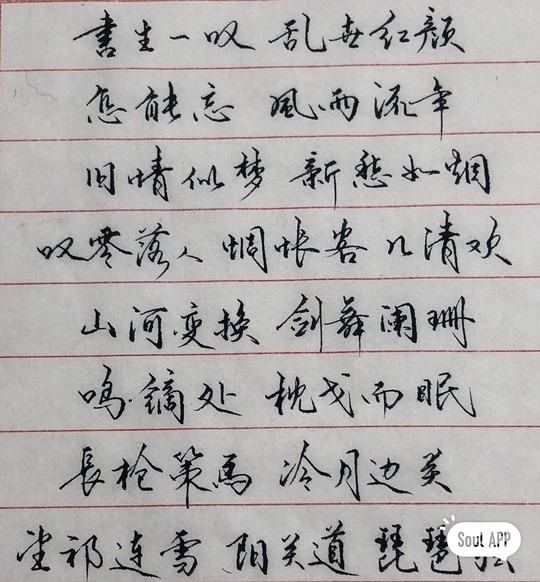 書生一叹 乱世红颜
怎能忘 風雨流年
旧情似梦 新愁如烟
叹零落人 惆怅客 几清欢
山河变换 剑舞阑珊
鸣镝处 枕戈而眠
長枪策馬 冷月边关
望祁连雪 阳关道 琵琶
Soul APP